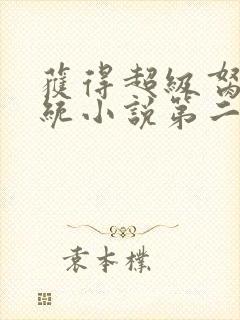 獲得超級
統小說第二
袁本樸